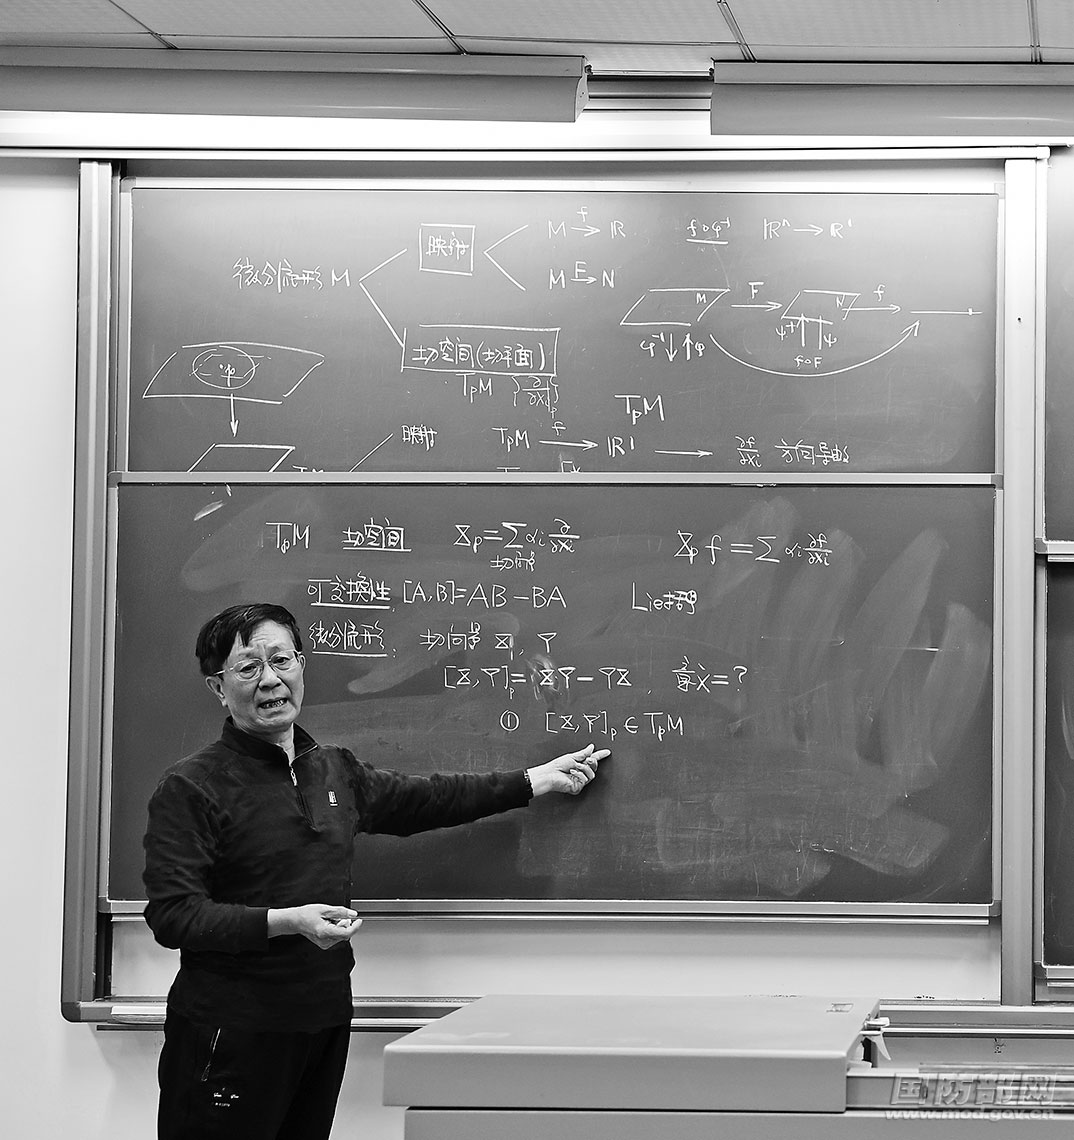 微分流形 M
映射
M f→ R
f∘φ⁻¹ Rⁿ→R¹
M F→ N
M F→ N f→
φ⁻¹↓↑φ ψ⁻¹↑↑ψ
f∘F
切空间(切平面)
TpM {∂/∂xi}p
·p
TpM
映射 TpM f→ R¹ → ∂f/∂xi 方向导数
TpM 切空间 Xp=∑αi ∂/∂xi Xp f=∑αi ∂f/∂xi
切向量
可交换性: [A,B]=AB-BA Lie括号
微分流形: 切向量 X, Y
[X,Y]p=XY-YX, 意义=?
① [X,Y]p∈TpM
国防部网
www.mod.gov.cn